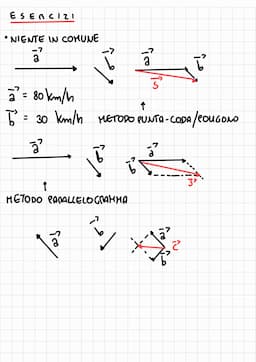 ESERCIZI
• NIENTE IN COMUNE
a b a b
s
a = 80 km/h
b = 30 km/h METODO PUNTA-CODA/POLIGONO
a b b a
s
METODO PARALLELOGRAMMA
a b a c
b